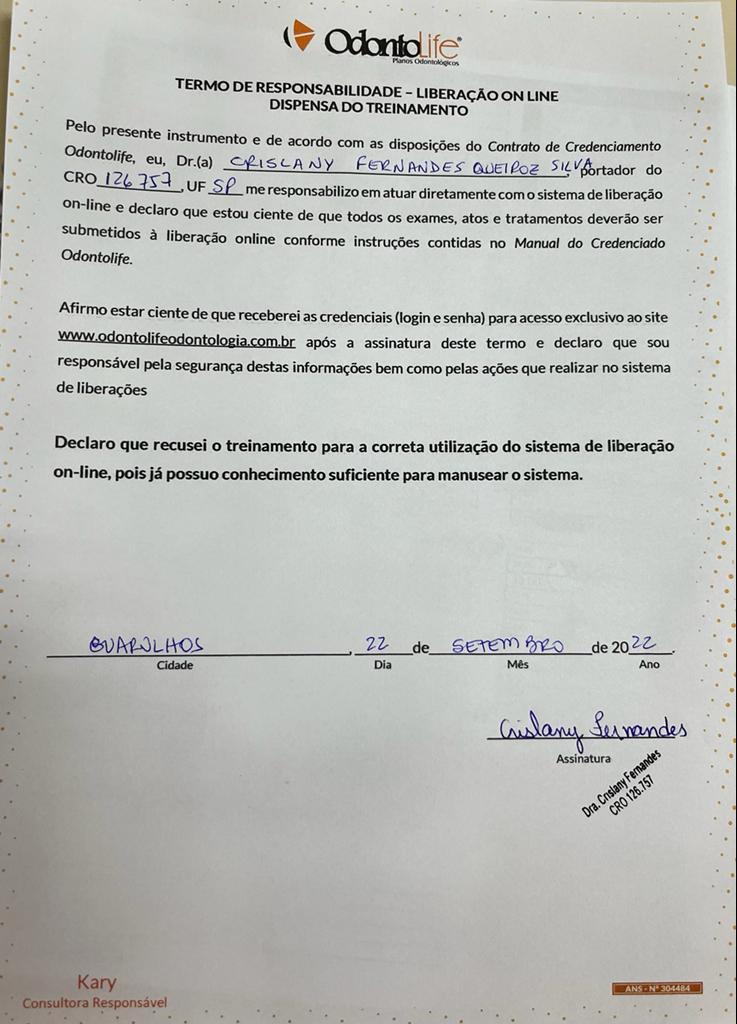 OdontoLife
Planos Odontológicos
TERMO DE RESPONSABILIDADE – LIBERAÇÃO ON LINE
DISPENSA DO TREINAMENTO
Pelo presente instrumento e de acordo com as disposições do Contrato de Credenciamento
Odontolife, eu, Dr.(a) CRISLANY FERNANDES QUEIROZ SILVA, portador do
CRO 126 757, UF SP me responsabilizo em atuar diretamente com o sistema de liberação
on-line e declaro que estou ciente de que todos os exames, atos e tratamentos deverão ser
submetidos à liberação online conforme instruções contidas no Manual do Credenciado
Odontolife.
Afirmo estar ciente de que receberei as credenciais (login e senha) para acesso exclusivo ao site
www.odontolifeodontologia.com.br após a assinatura deste termo e declaro que sou
responsável pela segurança destas informações bem como pelas ações que realizar no sistema
de liberações
Declaro que recusei o treinamento para a correta utilização do sistema de liberação
on-line, pois já possuo conhecimento suficiente para manusear o sistema.
GUARULHOS, 22 de SETEMBRO de 2022.
Cidade Dia Mês Ano
Crislany Fernandes
Assinatura
Dra. Crislany Fernandes
CRO 126.757
Kary
Consultora Responsável
ANS - Nº 304484